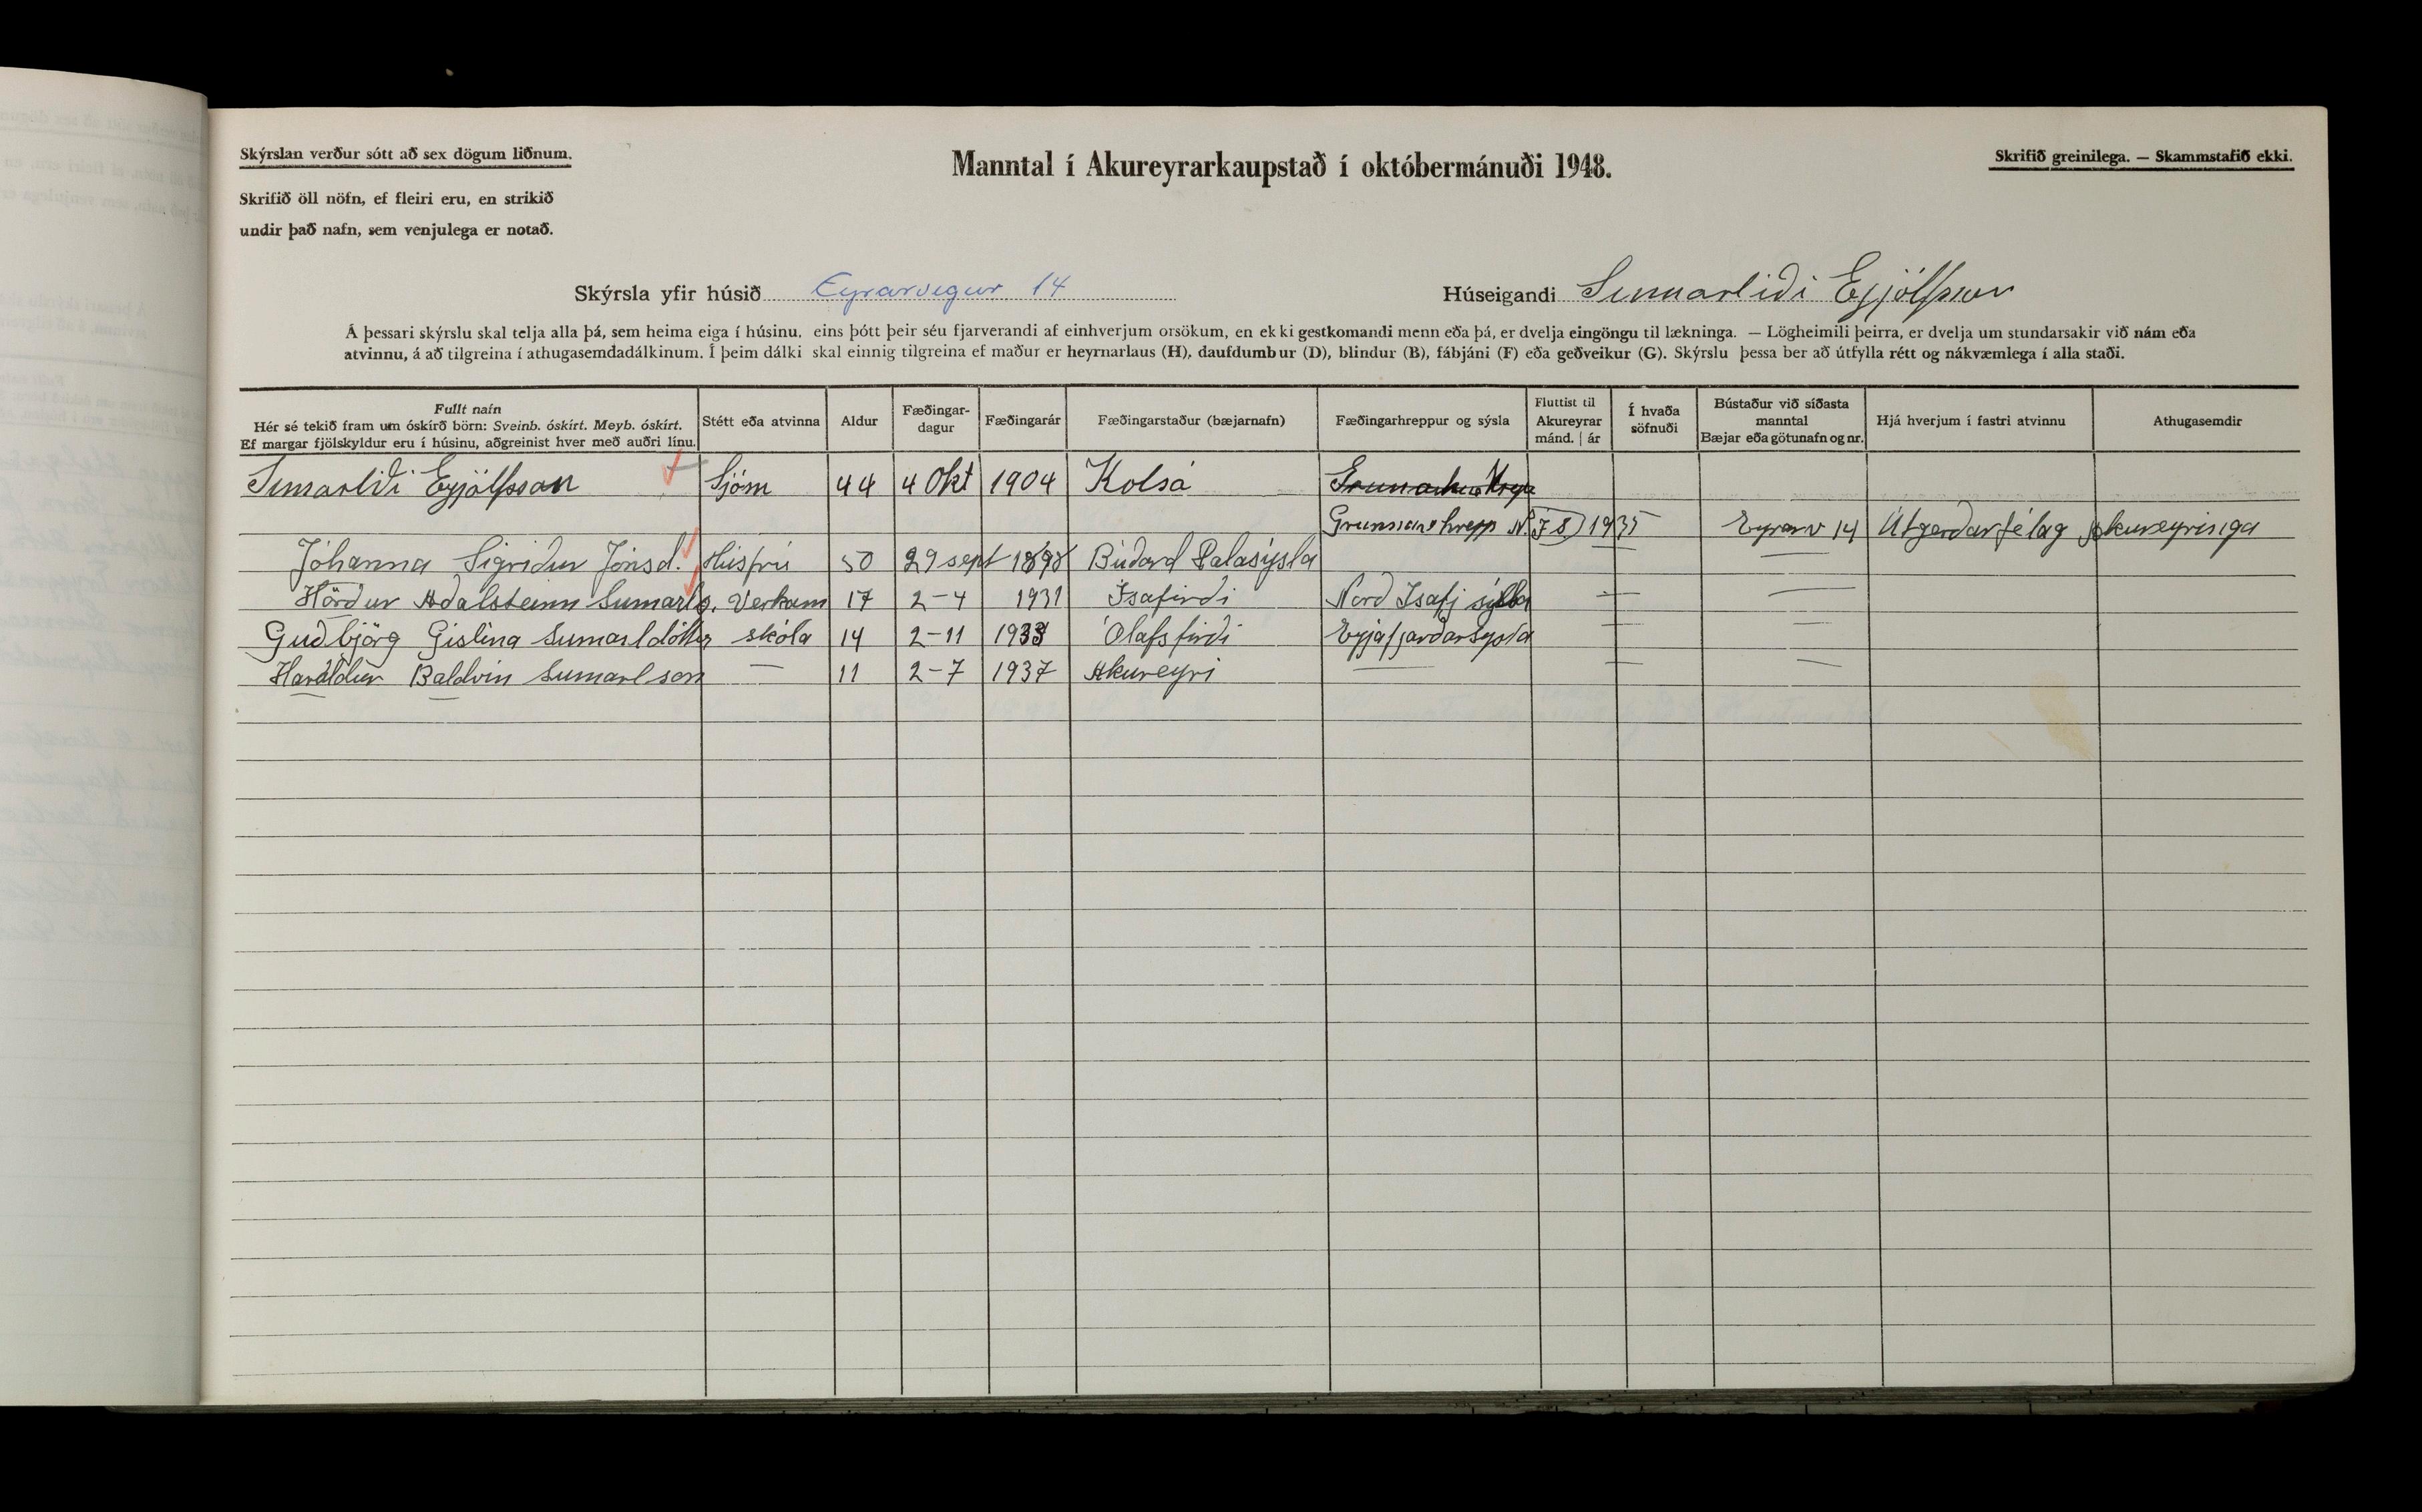 Skýrslan verður sótt að sex dögum liðnum.
Skrifið öll nöfn, ef fleiri eru, en strikið
undir það nafn, sem venjulega er notað.
Manntal í Akureyrarkaupstað í októbermánuði 1948.
Skrifið greinilega. — Skammstafið ekki.
Skýrsla yfir húsið Eyrarvegur 14
Húseigandi Sumarliði Eyjólfsson
Á þessari skýrslu skal telja alla þá, sem heima eiga í húsinu, eins þótt þeir séu fjarverandi af einhverjum orsökum, en ekki gestkomandi menn eða þá, er dvelja eingöngu til lækninga. — Lögheimili þeirra, er dvelja um stundarsakir við nám eða
atvinnu, á að tilgreina í athugasemdadálkinum. Í þeim dálki skal einnig tilgreina ef maður er heyrnarlaus (H), daufdumbur (D), blindur (B), fábjáni (F) eða geðveikur (G). Skýrslu þessa ber að útfylla rétt og nákvæmlega í alla staði.
Fullt nafn
Hér sé tekið fram um óskírð börn: Sveinb. óskírt. Meyb. óskírt.
Ef margar fjölskyldur eru í húsinu, aðgreinist hver með auðri línu.
Stétt eða atvinna
Aldur
Fæðingar-
dagur
Fæðingarár
Fæðingarstaður (bæjarnafn)
Fæðingarhreppur og sýsla
Fluttist til
Akureyrar
mánd. | ár
Í hvaða
söfnuði
Bústaður við síðasta
manntal
Bæjar eða götunafn og nr.
Hjá hverjum í fastri atvinnu
Athugasemdir
Sumarliði Eyjólfsson Sjóm 44 4 Okt 1904 Kolsá
Grunnavs hrepp N. Is 1935 Eyrarv 14 Útgerdarfélag Akureyringa
Jóhanna Sigridur Jónsd. Húsfrú 50 29 sept 1898 Búdard Dalasýsla
Hördur Adalsteinn Sumarls. Verkam 17 2-4 1931 Ísafirdi Nord Isafj sýsla
Gudbjörg Gislina Sumarldóttir skóla 14 2-11 1933 Ólafsfirdi Eyjafjardarsysla
Haraldur Baldvin Sumarlson — 11 2-7 1937 Akureyri